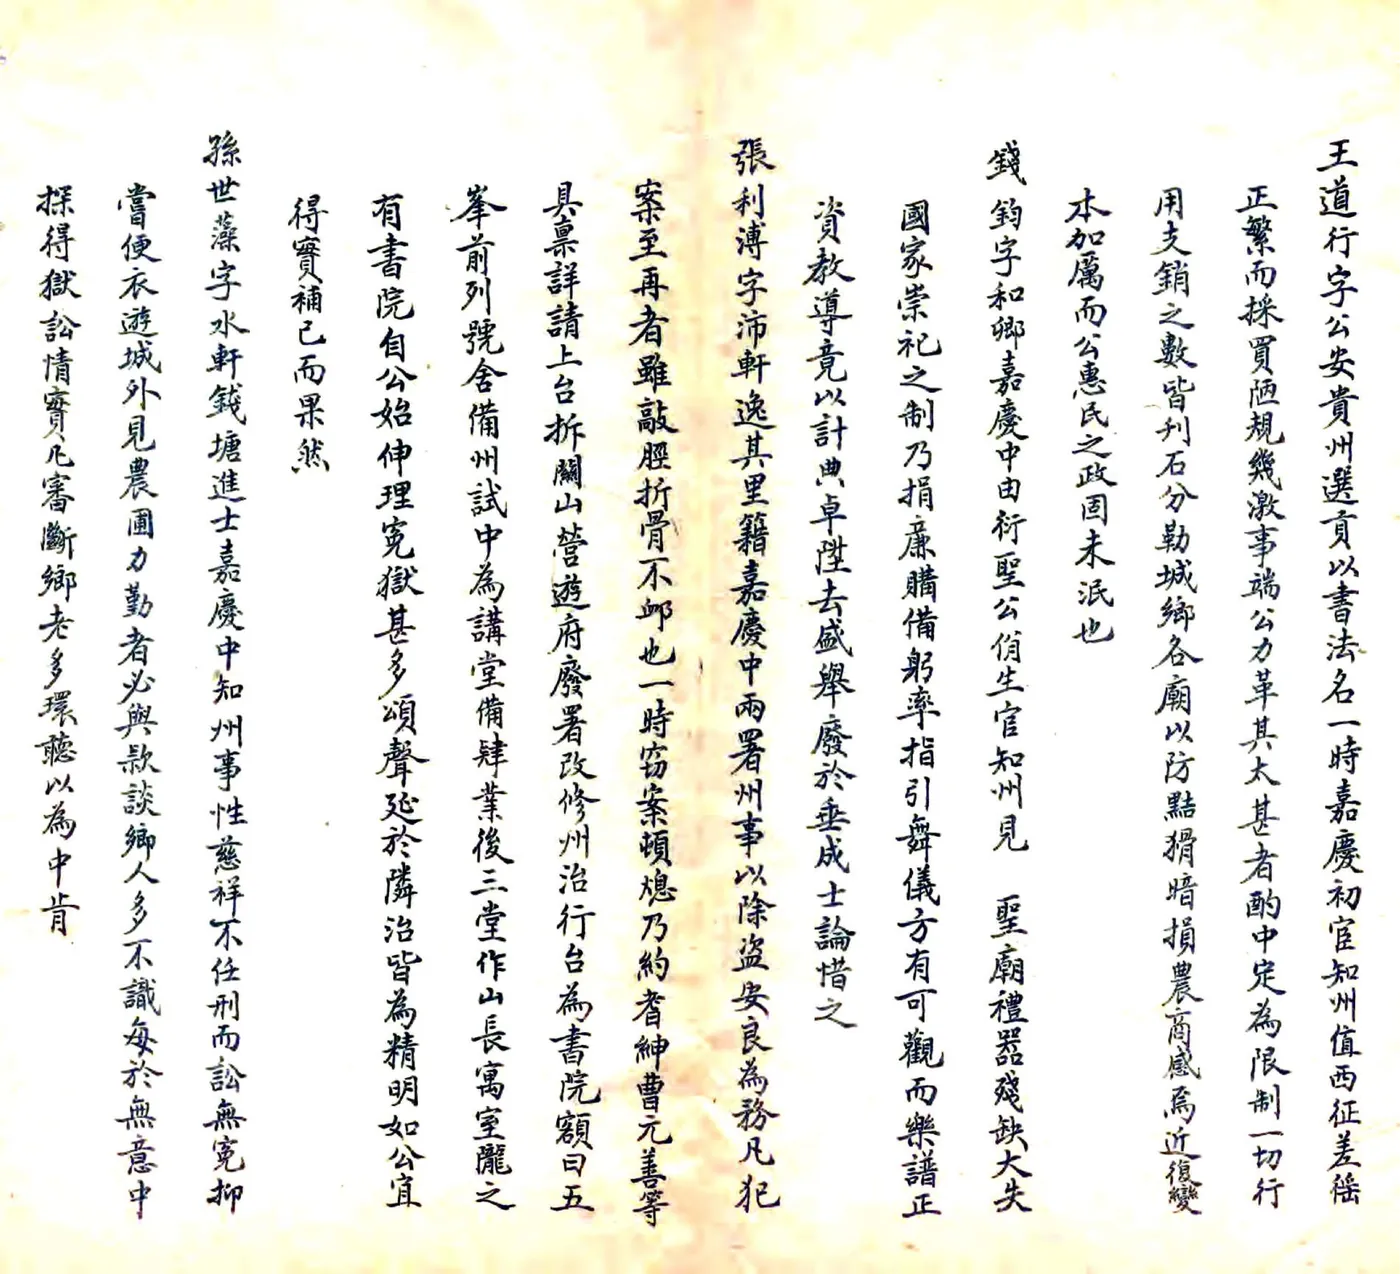 王道行字公安貴州選貢以書法名一時嘉慶初官知州值西征差徭
正繁而採買陋規幾激事端公力革其太甚者酌中定為限制一切行
用支銷之數皆刊石分勒城鄉各廟以防黠猾暗損農商感焉近復變
本加厲而公惠民之政固未泯也
錢鈞字和卿嘉慶中由衍聖公俏生官知州見 聖廟禮器殘缺大失
國家崇祀之制乃捐廉購備躬率指引舞儀方有可觀而樂譜正
資教導竟以計典卓陞去盛舉廢於垂成士論惜之
張利溥字沛軒逸其里籍嘉慶中兩署州事以除盜安良為務凡犯
案至再者雖敲脛折骨不卹也一時窃案頓熄乃約耆紳曹元善等
具稟詳請上台拆關山營遊府廢署改修州治行台為書院額曰五
峯前列號舍備州試中為講堂備肆業後三堂作山長寓室隴之
有書院自公始伸理冤獄甚多頌聲延於隣治皆為精明如公宜
得實補已而果然
孫世藻字水軒錢塘進士嘉慶中知州事性慈祥不任刑而訟無冤抑
嘗便衣遊城外見農圃力勤者必與欵談鄉人多不識每於無意中
探得獄訟情實凡審斷鄉老多環聽以為中肯